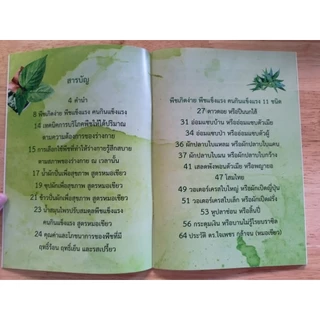 สารบัญ
4 คำนำ
8 พืชเกิดง่าย พืชแข็งแรง คนกินแข็งแรง
14 เทคนิคการบริโภคพืชให้ได้ปริมาณ
ตามความต้องการของร่างกาย
15 การเลือกใช้พืชที่ทำให้ร่างกายรู้สึกสบาย
ตามสภาพของร่างกาย ณ เวลานั้น
17 น้ำผักปั่นเพื่อสุขภาพ สูตรหมอเขียว
19 ซุปผักเพื่อสุขภาพ สูตรหมอเขียว
21 ข้าวปั่นผักเพื่อสุขภาพ สูตรหมอเขียว
23 น้ำสมุนไพรปรับสมดุลพืชแข็งแรง
คนกินแข็งแรง สูตรหมอเขียว
24 คุณค่าและโภชนาการของพืชที่มี
ฤทธิ์ร้อน ฤทธิ์เย็น และรสเปรี้ยว
พืชเกิดง่าย พืชแข็งแรง คนกินแข็งแรง 11 ชนิด
27 ดาวดอย หรือปืนนกไส้
31 อ่อมแซบตัวเมีย หรืออ่อมแซบตัวเมีย
34 อ่อมแซบป่า หรืออ่อมแซบตัวผู้
36 ผักปลาบใบแหลม หรือผักปลาบใบแคบ
37 ผักปลาบใบมน หรือผักปลาบใบกว้าง
41 เสลดพังพอนตัวเมีย หรือพญายอ
47 โสมไทย
49 วอเตอร์เครสใบใหญ่ หรือผักเป็ดญี่ปุ่น
51 วอเตอร์เครสใบเล็ก หรือผักเป็ดฝรั่ง
53 หูปลาช่อน หรือลิ้นปี่
56 กระดุมเงิน หรือบานไม่รู้โรยบราซิล
64 ประวัติ ดร.ใจเพชร กล้าจน (หมอเขียว)